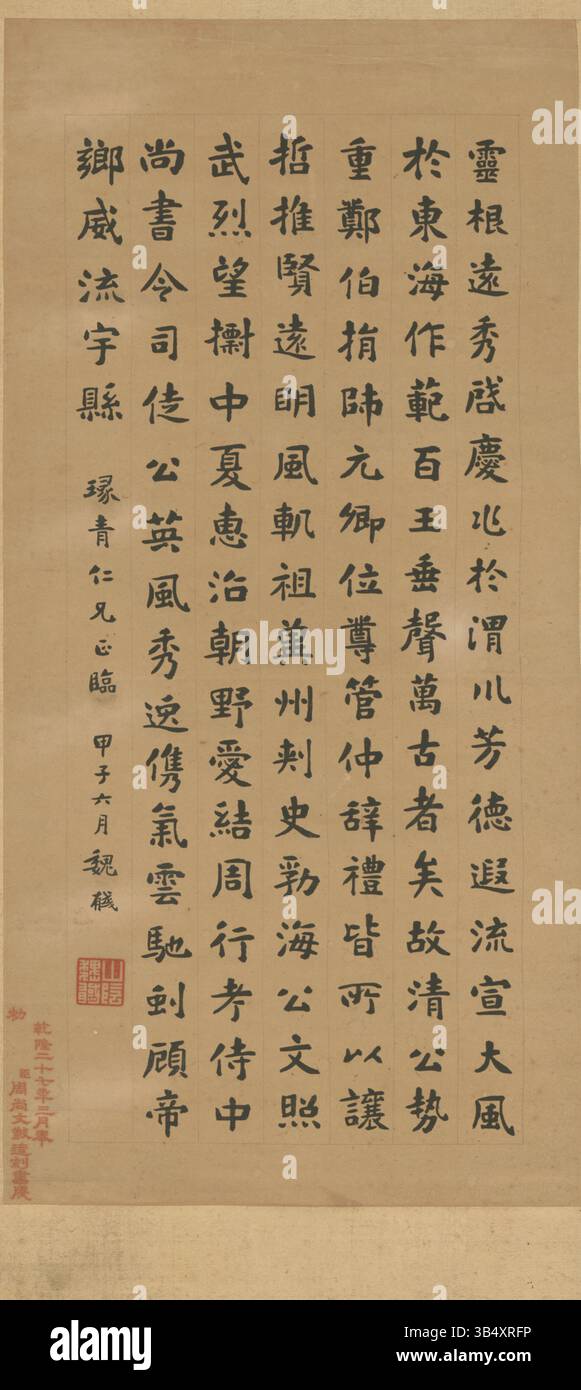 靈根遠秀啓慶兆於渭川芳德遐流宣大風
於東海作範百王垂聲萬古者矣故清公勢
重鄭伯捐師元卿位尊管仲辭禮皆所以讓
哲推賢遠明風軌祖冀州刺史勃海公文照
武烈望中夏惠洽朝野愛結周行考侍中
尚書令司徒公英風秀逸儁氣雲馳劍顧帝
鄉威流宇縣
青仁兄正臨 甲子六月魏戫
勅
乾隆二十七年三月奉
臣周尚文敬造
alamy
Image ID: 3B4XRFP
www.alamy.com